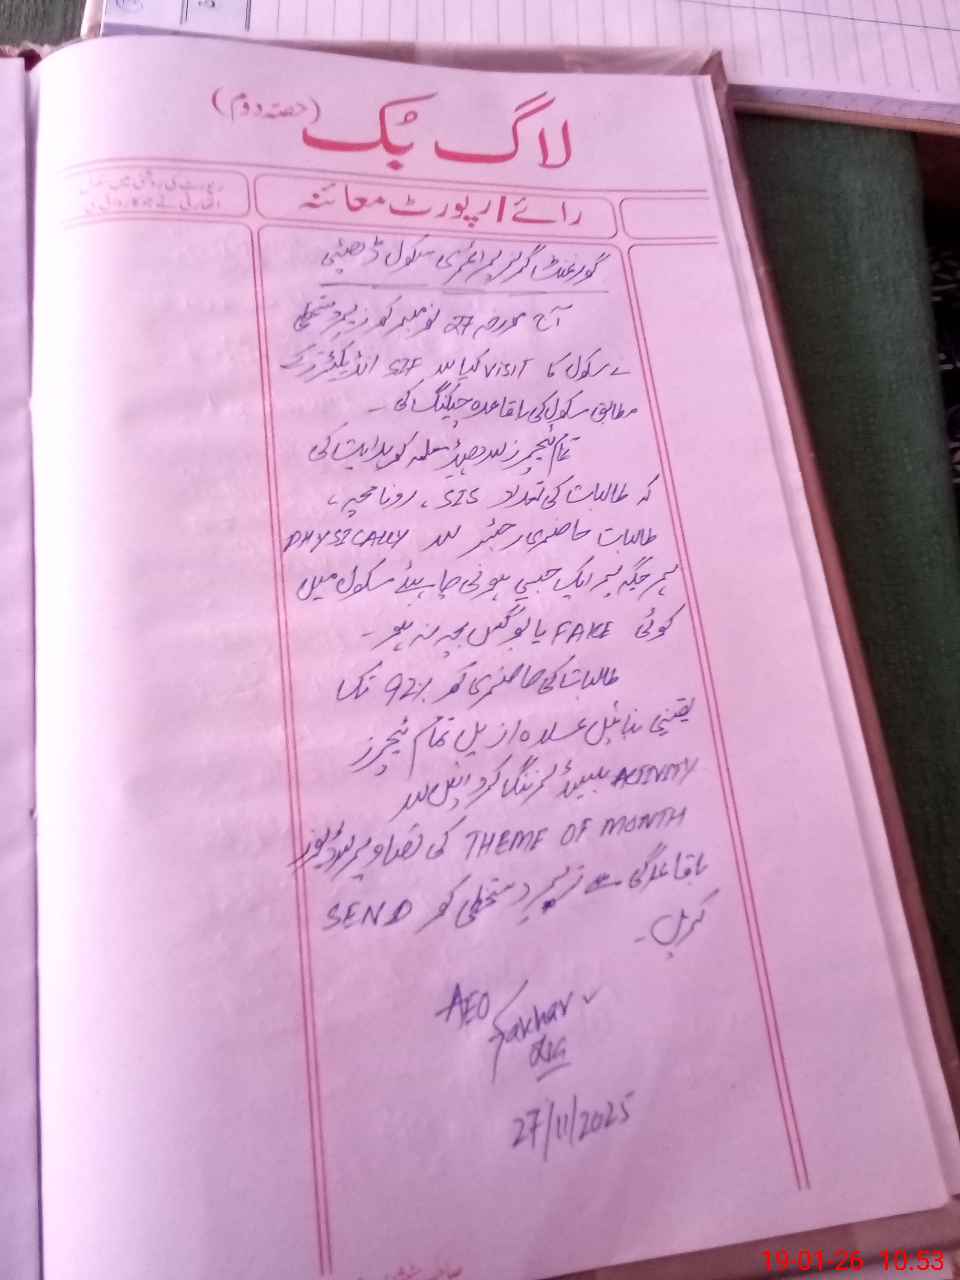 لاگ بُک (حصہ دوم)
رائے / رپورٹ معائنہ
رپورٹ کی روشنی میں
گورنمنٹ گرلز پرائمری سکول
آج مورخہ 27 نومبر کو زیر دستخطی
نے سکول کا VISIT کیا اور SIF انڈیکیٹرز کے
مطابق سکول کی باقاعدہ چیکنگ کی ۔
تمام ٹیچرز اور ہیڈ معلمہ کو ہدایت کی
کہ طالبات کی تعداد SIS ، روزنامچہ ،
طالبات حاضری رجسٹر اور PHYSICALLY
ہر جگہ پر ایک جیسی ہونی چاہیئے سکول میں
کوئی FAKE یا بوگس بچہ نہ ہو ۔
طالبات کی حاضری کو 92% تک
یقینی بنائیں علاوہ ازیں تمام ٹیچرز
ACTIVITY بیسڈ لرننگ کروائیں اور
THEME OF MONTH کی تصاویر اور ویڈیوز
باقاعدگی سے زیر دستخطی کو SEND
کریں ۔
AEO
27/11/2025
19-01-26 10.53